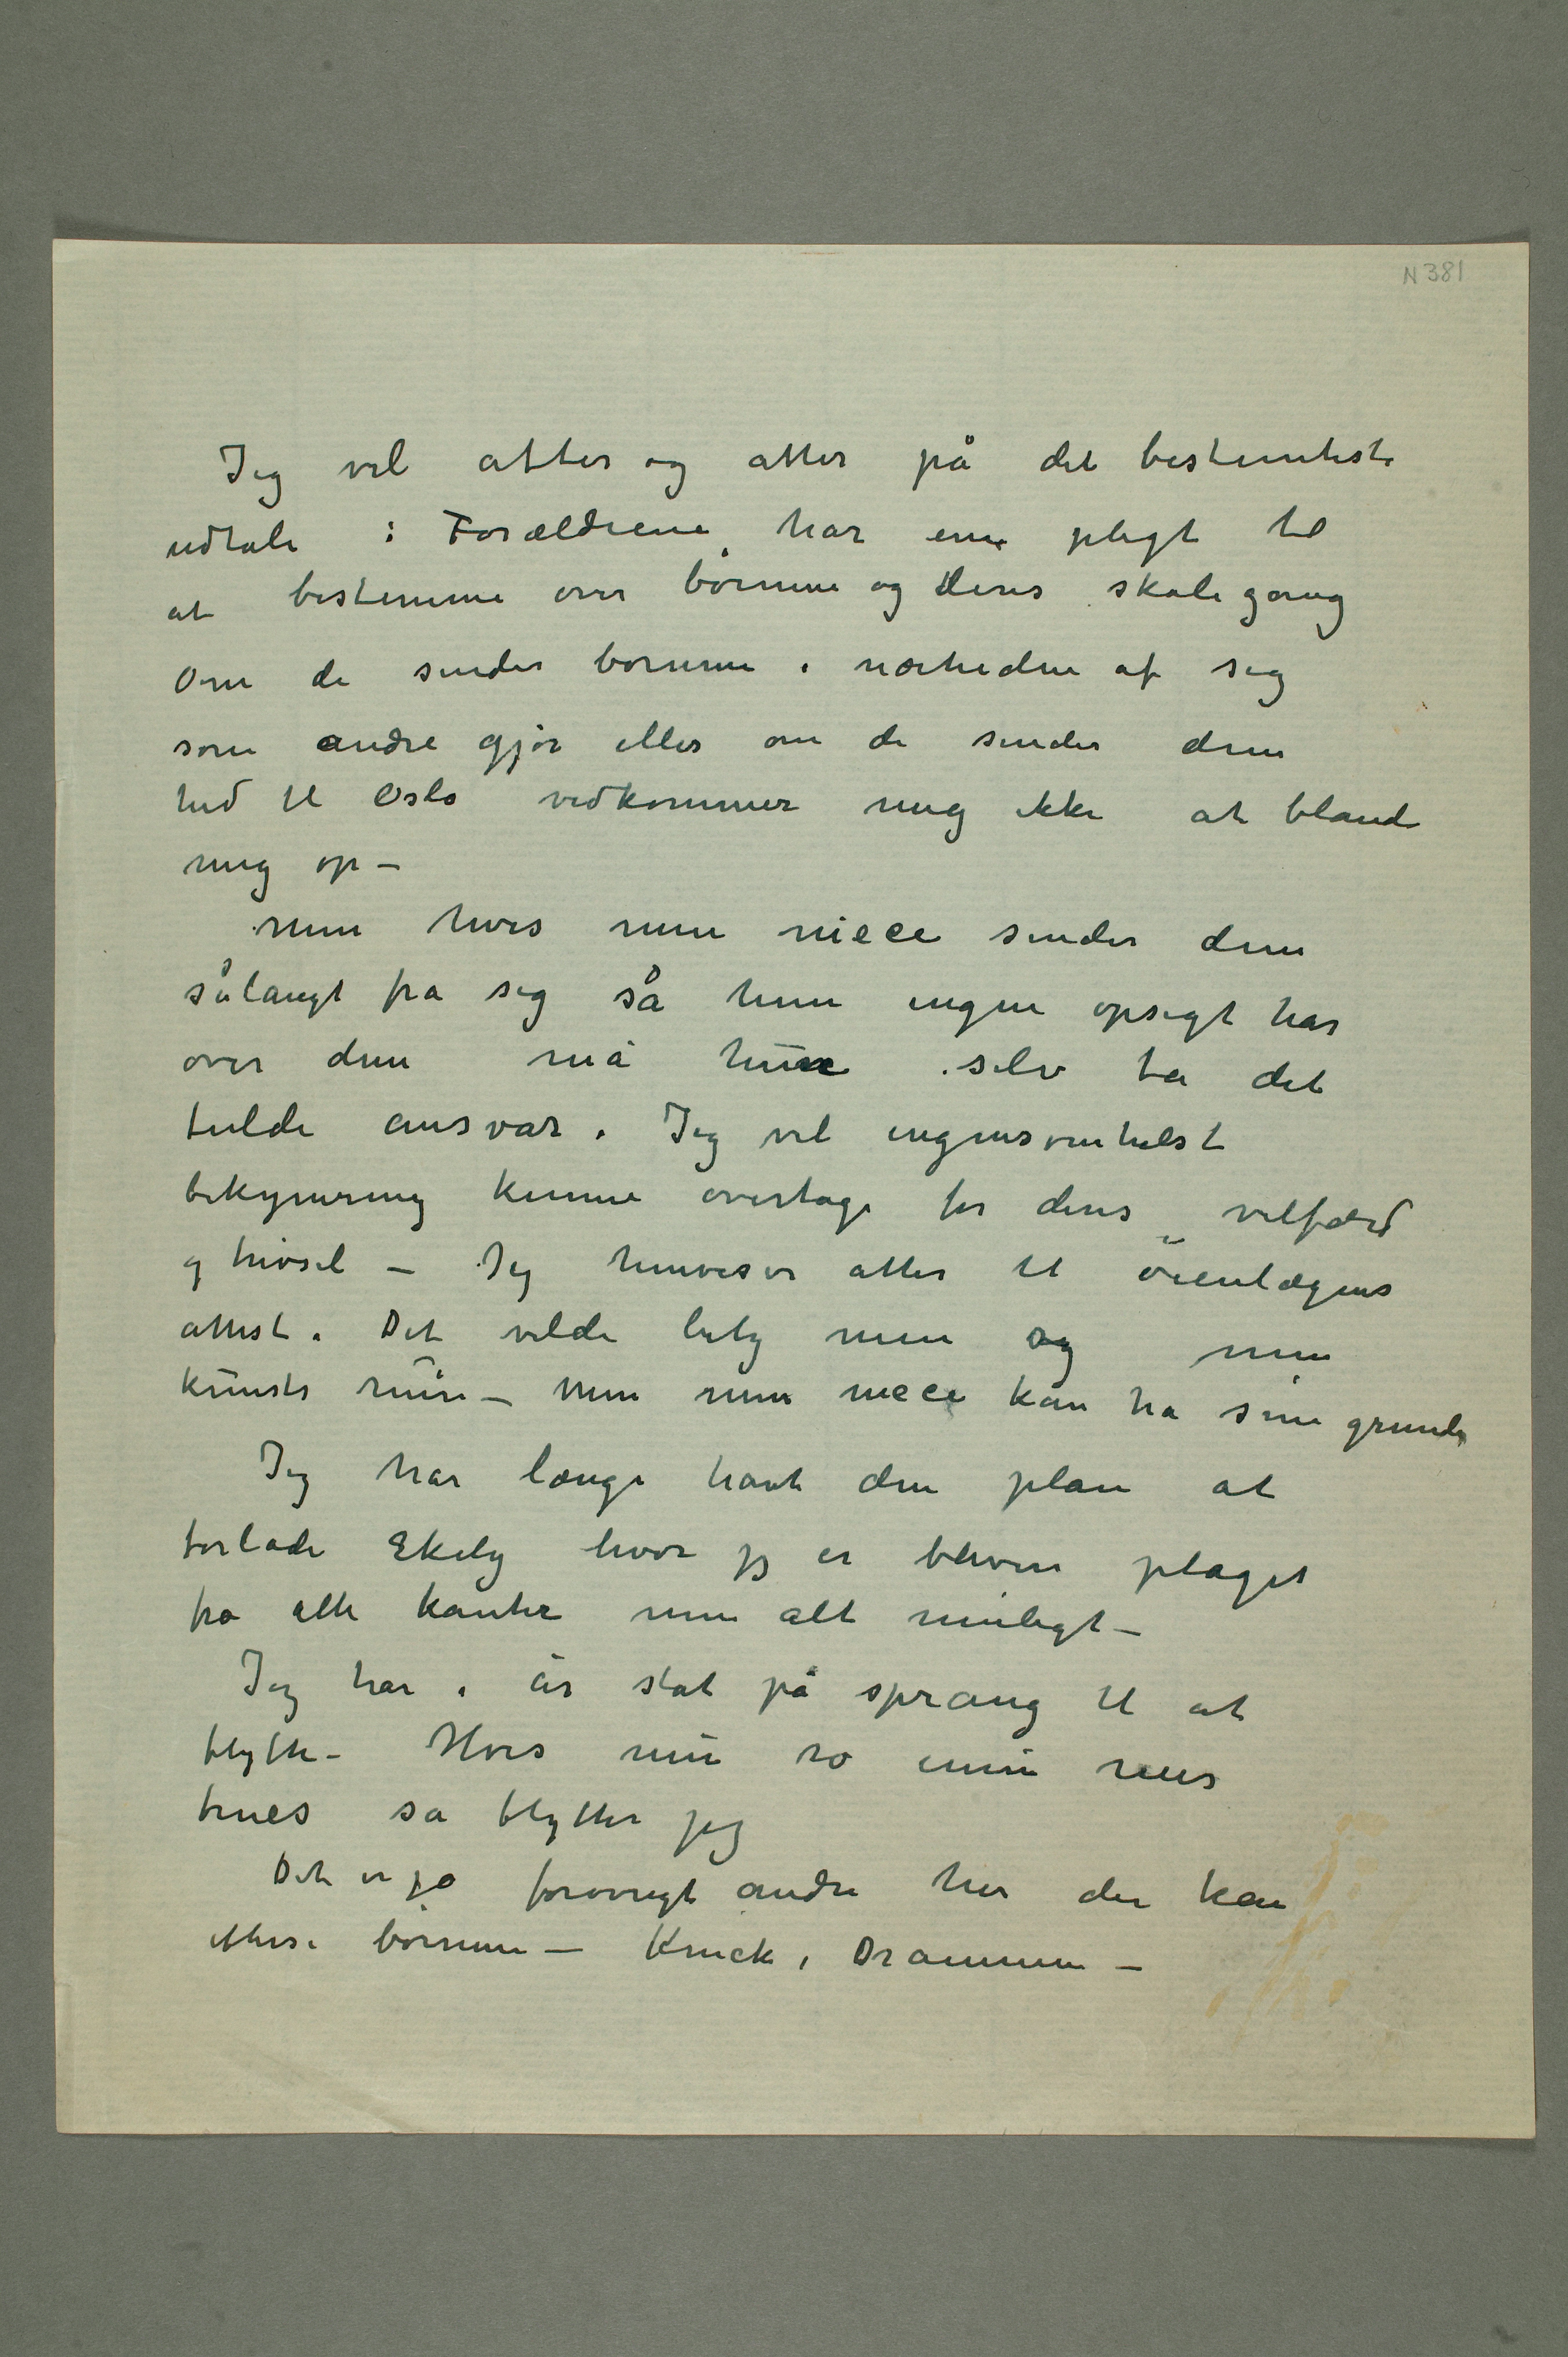 N 381
Jeg vil atter og atter på det bestemteste
udtale : Forældrene har en pligt til
at bestemme over børnene og deres skolegang
Om de sender børnene i nærheden af sig
som andre gjør eller om de sender dem
hid til Oslo vedkommer mig ikke at blande
mig op –
Men hvis min niece sender dem
sålangt fra sig så hun ingen opsigt har
over dem må hun selv ta det
fulde ansvar. Jeg vil ingensomhelst
bekymring kunne overtage for deres velfærd
og trivsel – Jeg henviser atter til øienlægens
attest. Det vilde bety min og min
kunsts ruin – Men min niece kan ha sine grunde
Jeg har længe havt den plan at
forlade Ekely hvor jeg er bleven plaget
fra alle kanter med alt muligt –
Jeg har i årståt på sprang til at
flytte – Hvis min ro ennu mer
trues så flytter jeg
Det er jo forøvrigt andre her der kan
efterse børnene – Kruck i Drammen –